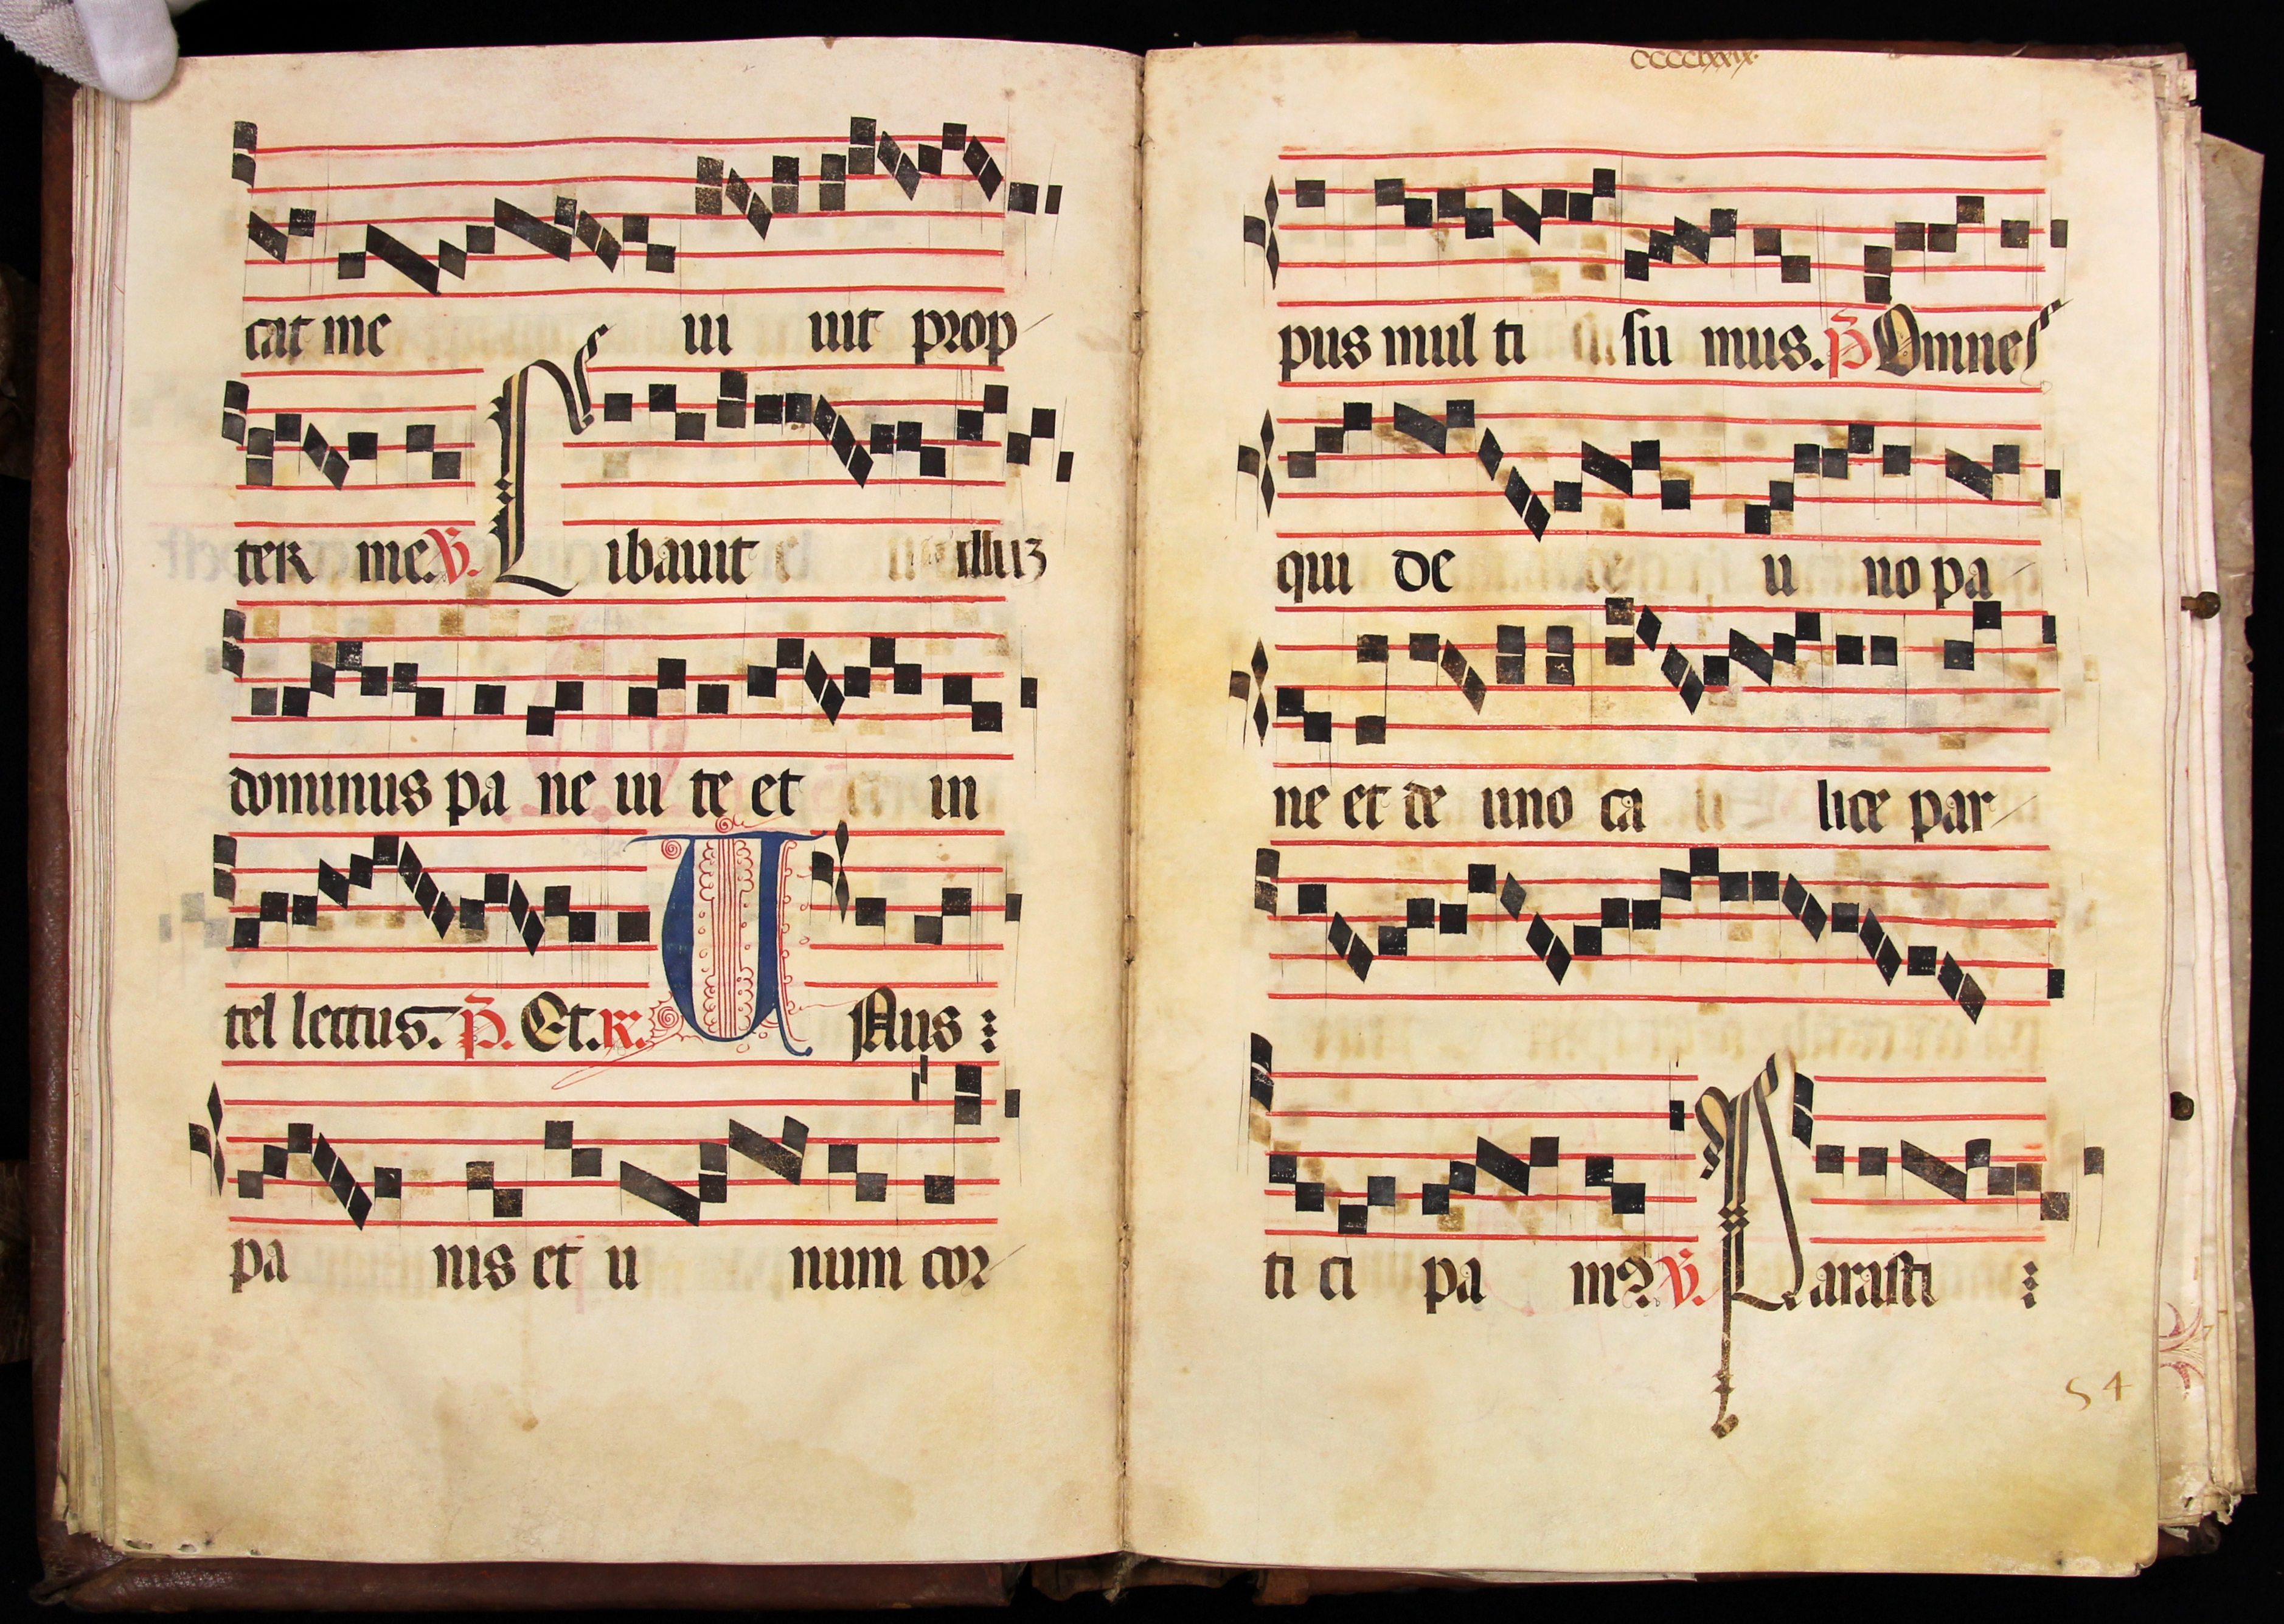 cat me ui uit prop
ter me. ℣. Libauit illuꝫ
dominus pa ne ui te et in
tel lectus. P̄. Et. ℟. U Nus :
pa nis et u num cor
CCCClxxix.
pus mul ti su mus. P̄ Omnes
qui de u no pa
ne et de uno ca lice par
ti ci pa m? ℣. Parasti :
54